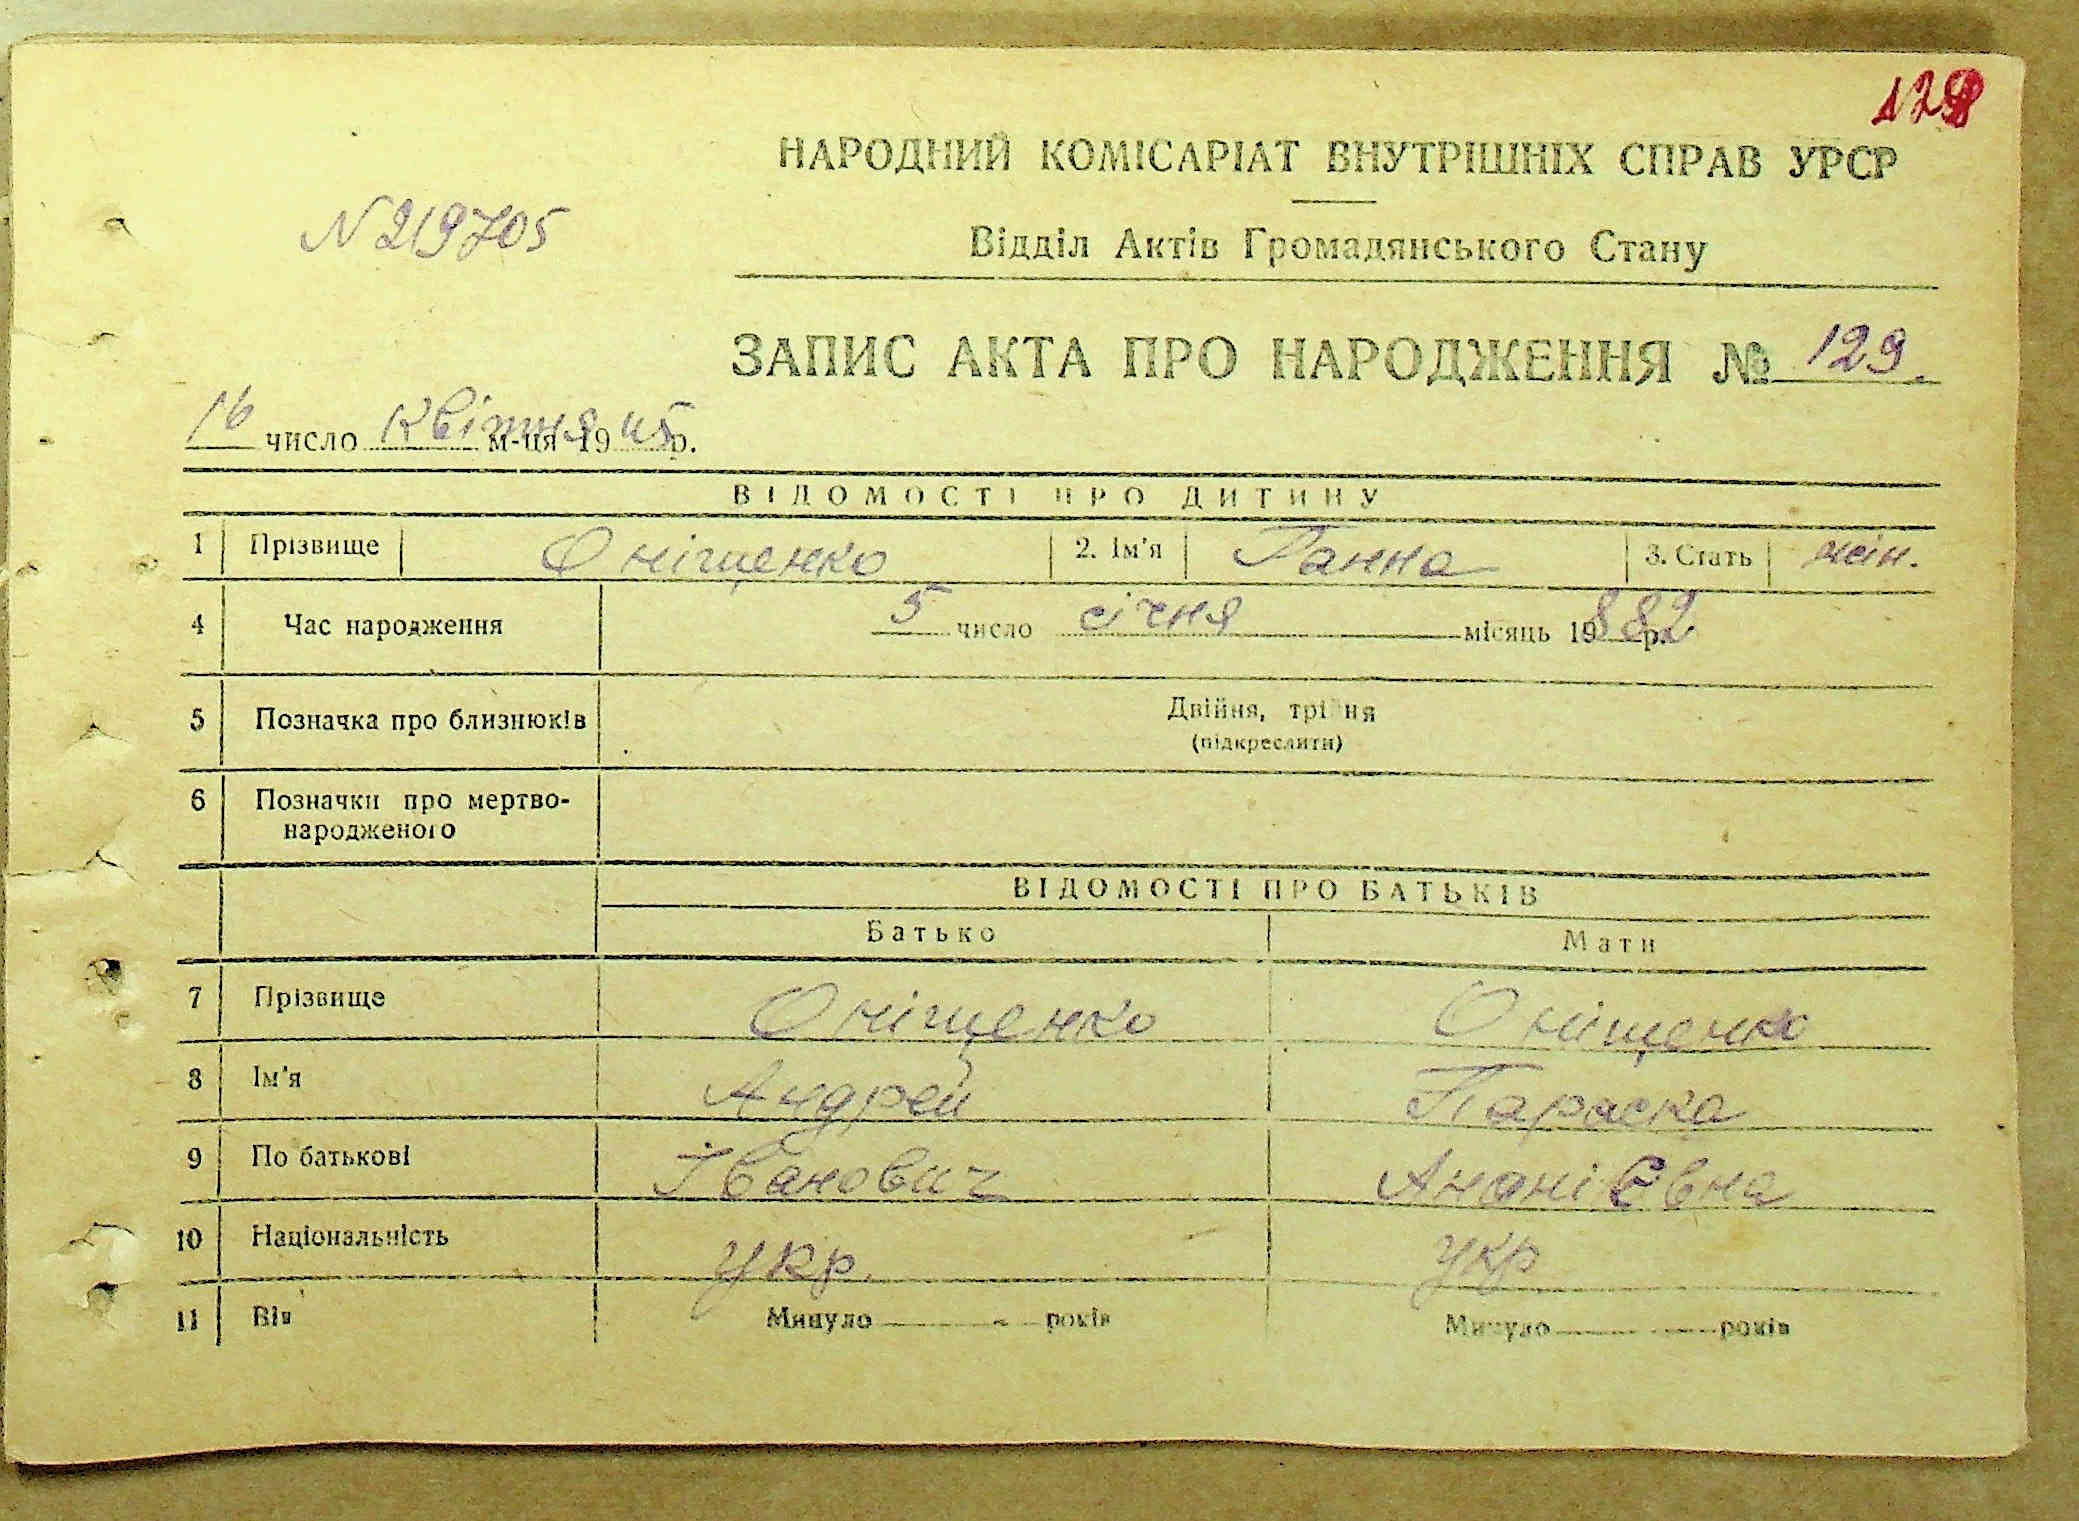 128
НАРОДНИЙ КОМІСАРІАТ ВНУТРІШНІХ СПРАВ УРСР
N 219705
Відділ Актів Громадянського Стану
ЗАПИС АКТА ПРО НАРОДЖЕННЯ № 129.
16 число Квітня м-ця 1945р.
ВІДОМОСТІ ПРО ДИТИНУ
1 Прізвище Оніщенко 2. Ім'я Ганна 3. Стать жін.
4 Час народження 5 число січня місяць 19882 р.
5 Позначка про близнюків Двійня, трійня
(підкреслити)
6 Позначки про мертво-
народженого
ВІДОМОСТІ ПРО БАТЬКІВ
Батько Мати
7 Прізвище Оніщенко Оніщенко
8 Ім'я Андрей Параска
9 По батькові Іванович Ананієвна
10 Національність укр. укр
11 Вік Минуло - років Минуло років